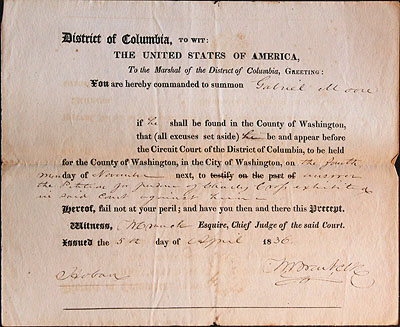 District of Columbia, TO WIT:
THE UNITED STATES OF AMERICA,
To the Marshal of the District of Columbia, GREETING:
You are hereby commanded to summon Gabriel Moore
if he shall be found in the County of Washington,
that (all excuses set aside) he be and appear before
the Circuit Court of the District of Columbia, to be held
for the County of Washington, in the City of Washington, on the fourth
Monday of November next, to testify on the part of answer
the Petition for freedom of Charles exhibited
in said Court against him
Hereof, fail not at your peril; and have you then and there this Precept.
Witness, Cranch Esquire, Chief Judge of the said Court.
Issued the 5th day of April 1836
Hoban
W Brent Clk